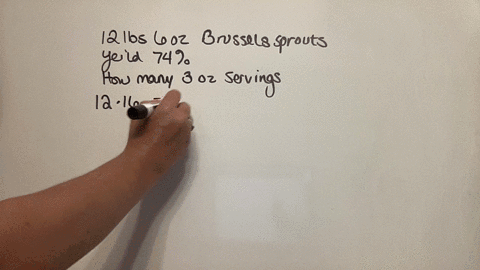 12 lbs 6 oz Brussels sprouts
Yeild 74%
How many 3 oz servings
12 · 16 =